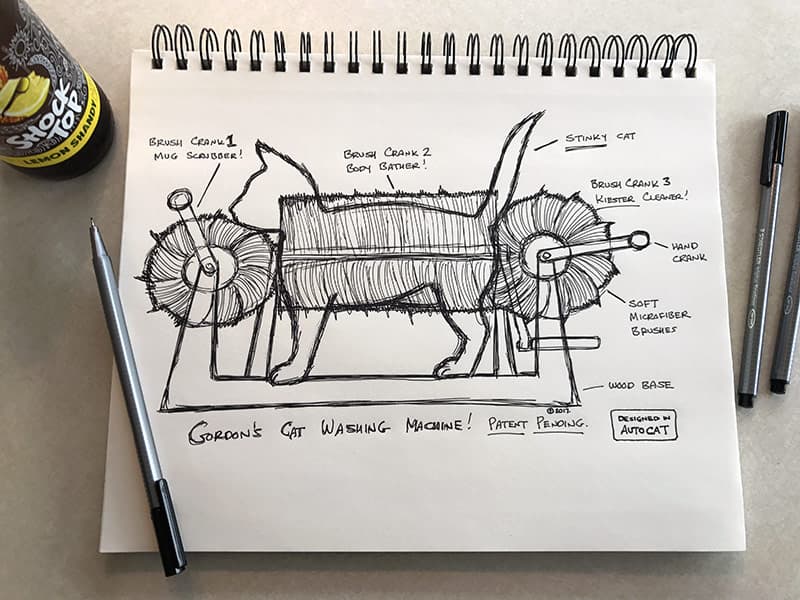 SHOCK
TOP
LEMON SHANDY
BRUSH CRANK 1
MUG SCRUBBER!
BRUSH CRANK 2
BODY BATHER!
STINKY CAT
BRUSH CRANK 3
KIESTER CLEANER!
HAND
CRANK
SOFT
MICROFIBER
BRUSHES
WOOD BASE
©2017
GORDON'S CAT WASHING MACHINE! PATENT PENDING.
DESIGNED IN
AUTOCAT
STAEDTLER